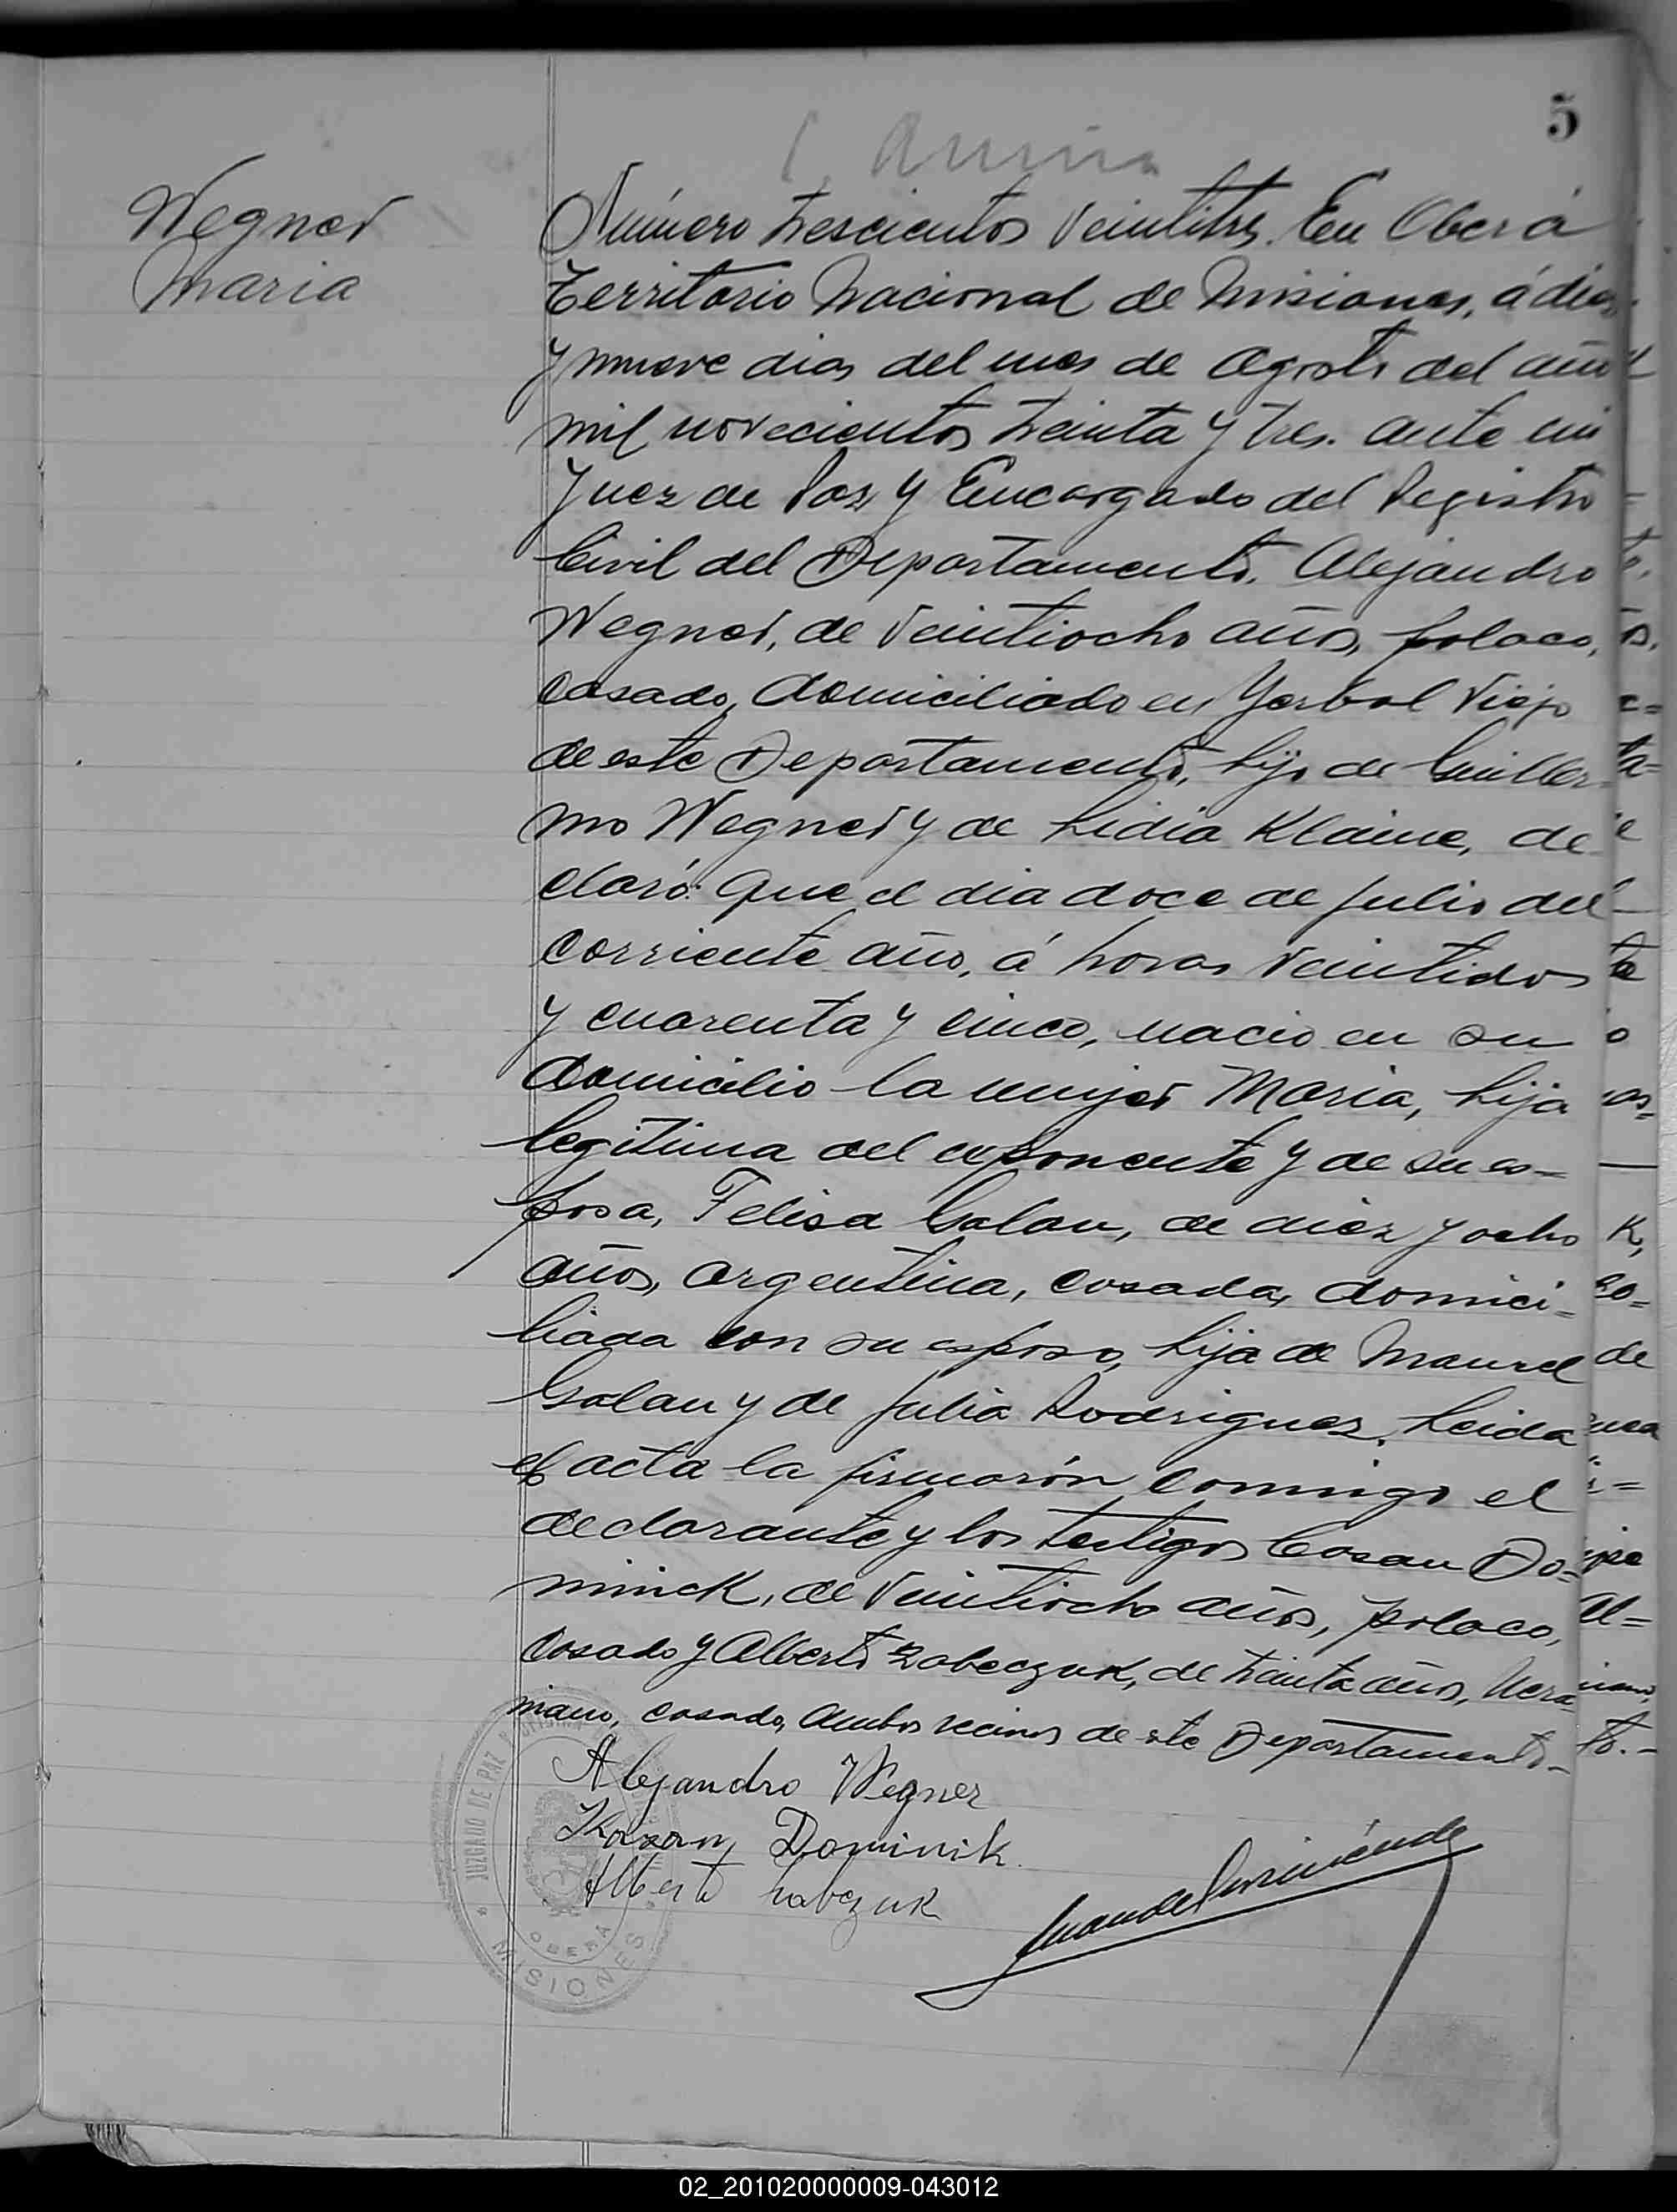 5
Wegner
Maria
Número trescientos veintitres. En Oberá
Territorio Nacional de Misiones, á diez
y nueve dias del mes de Agosto del año
mil novecientos treinta y tres. ante mi
Juez de Paz y Encargado del Registro
Civil del Departamento. Alejandro
Wegner, de veintiocho años, polaco,
casado, domiciliado en Yerbal Viejo
de este Departamento, hijo de Guiller-
mo Wegner y de Lidia Klaine, de-
claró: Que el dia doce de julio del
corriente año, á horas veintidos
y cuarenta y cinco, nacio en su
domicilio la mujer Maria, hija
legitima del exponente y de su es=
posa, Felisa Galan, de diez y ocho
años, argentina, casada, domici=
liada con su esposo, hija de Manuel
Galan y de Julia Rodriguez. Leida
el acta la firmarón conmigo el
declarante y los testigos Cosan Do=
minick, de veintiocho años, polaco,
casado y Alberto Zabeczuk, de treinta años, Ucra=
niano, casado, ambos vecinos de este Departamento-
Alejandro Wegner
Kazan Dominik.
Alberto
JUZGADO DE PAZ
OBERÁ
MISIONES
02_201020000009-043012